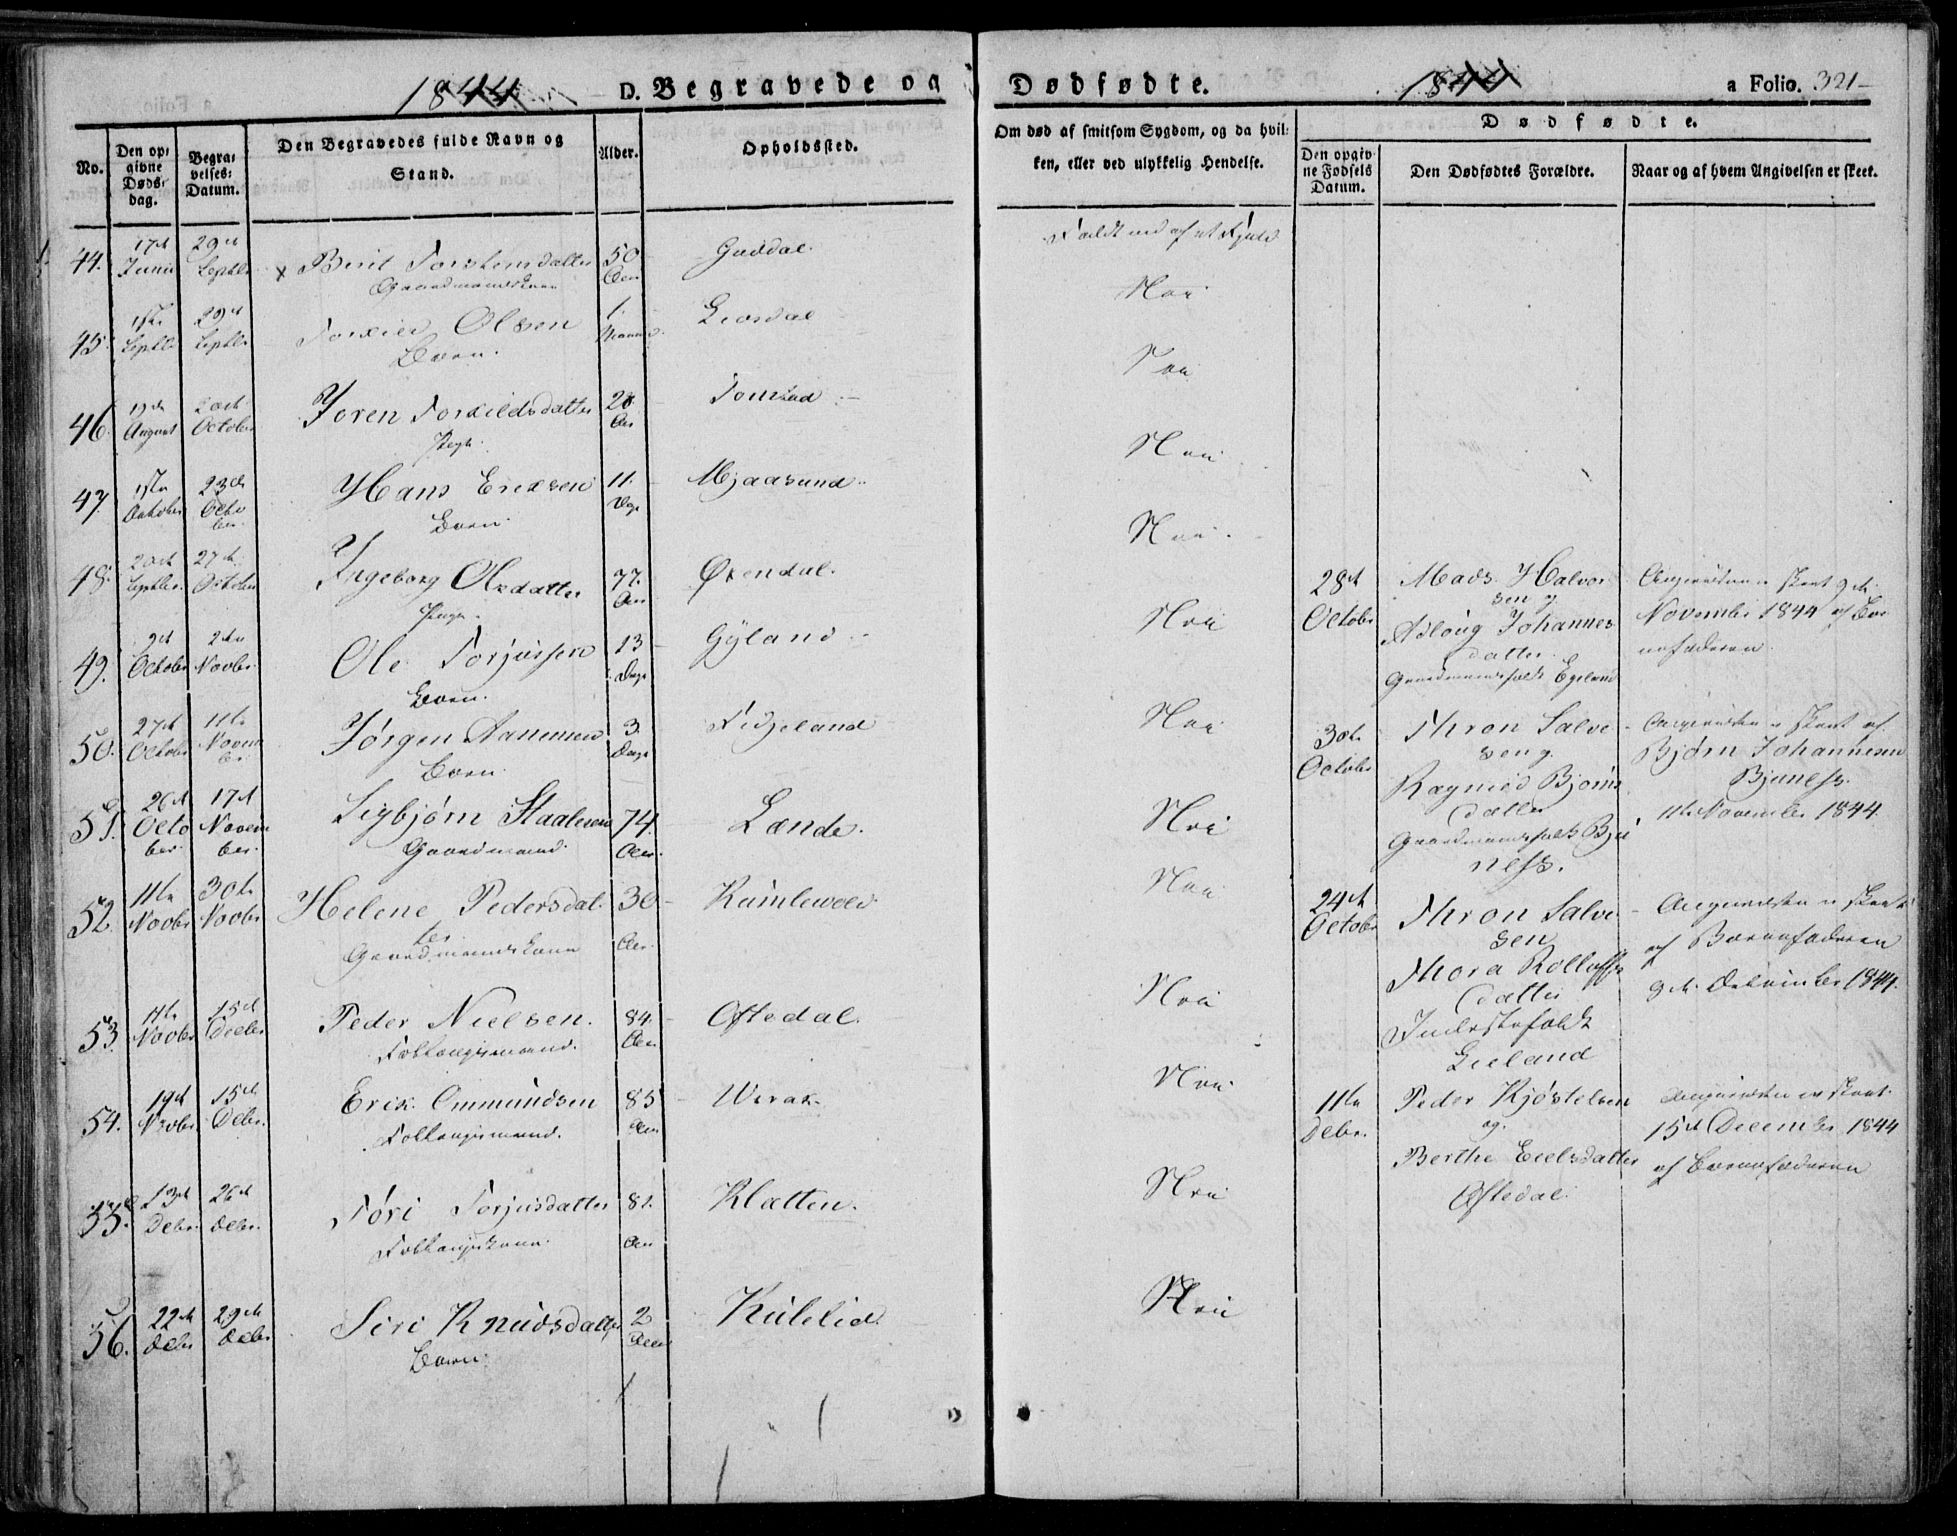 1844 D. Begravede og Dødfødte. 1844 a Folio. 321-
No.
Den opgivne Dødsdag.
Begravelses: Datum.
Den Begravedes fulde Navn og Stand.
Alder.
Opholdssted.
Om død af smitsom Sygdom, og da hvilken, eller ved ulykkelig Hendelse.
Dødfødte.
Den opgivne Fødsels Datum.
Den Dødfødtes Forældre.
Naar og af hvem Angivelsen er skeet.
44. 17de Junii 29de Septbr x Berit Torstensdatter 50 Aar
Gaardmandskone
45. 1ste Septbr 29de Septbr Torkild Olsen 1. Maaned Liosdal Nei
Barn.
46. 19de August 20de October Joren Torkildsdatter 28 Aar Tomstad Nei
Pige.
47. 1ste October 23de October Hans Ericksen 11. Dage Mjaasund Nei
Barn.
48. 20de Septbr. 27de October Ingeborg Olsdatter 77. Aar Øxendal. Nei.
Pige.
49. 9de October Novbr. Ole Torjussen 13 Dage Gyland Nei
Barn.
50. 27de October 11te November Jørgen Aanensen 3. Dage Fidjeland Nei
Barn.
51. 26de October 17de November Sigbjørn Staalesen 74. Aar. Lande. Nei
Gaardmand.
52. 11te Novbr 30te Novbr Helene Pedersdatter 30 Aar. Nei
Gaardmandskone
53. 11te Novbr 15de Decbr Peder Nielsen. 84. Aar Oftedal. Nei
Follaugsmand.
54. 19de Novbr 15de Debr. Erik Ommundsen 85 Aar Virak. Nei.
Follaugsmand.
55. 13de Debr. 26de Debr. Tøri Torjusdatter 81. Aar Klatten. Nei
Follaugskone.
56. 22de Debr 29de Debr Siri Knudsdatter 2 Aar Kulelid. Nei
Barn.
28de October
Mads Halvorsen og
Asloug Johannesdatter.
Gaardmandsfolk Egeland
Angivelsen er skeet 9de
November 1844 af Barnefaderen.
30te October
Thron Salvesen og
Ragnild Bjørnsdatter
Gaardmandsfolk Bjuness.
Angivelsen er skeet af
Bjørn Johannesen
Bjuness.
11te November 1844.
24de October
Thron Salvesen
Thora Rollefsdatter
Inderstefolk
Eieland
Angivelsen er skeet
af Barnefaderen
9de December 1844.
11te Debr.
Peder Kjøstelsen
og.
Berthe Eielsdatter
Oftedal.
Angivelsen er skeet
15de December 1844
af Barnefaderen